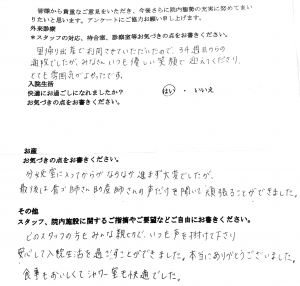 皆様から貴重なご意見をいただき、今後さらに院内態勢の充実に努めてまい
りたいと思います。アンケートにご協力お願い申し上げます。
外来診療
＊スタッフの対応、待合室、診察室等お気づきの点をお書きください。
里帰り出産で利用させていただいたので、34週目からの
通院でしたが、みなさんいつも優しい笑顔で迎えてくださり、
とても雰囲気がよかったです。
入院生活
快適にお過ごしになれましたか？ はい ・ いいえ
お気づきの点をお書きください。
お産
お気づきの点をお書きください。
分娩室に入ってからがなかなか進まず大変でしたが、
最後は看護師さん助産師さんの声だけを聞いて頑張ることができました。
その他
スタッフ、院内施設に関するご指摘やご要望などご自由にお書きください。
どのスタッフの方もみんな親切で、いつも声を掛けて下さり
安心して入院生活を過ごすことができました。本当にありがとうございました。
食事もおいしくてシャワー室も快適でした。